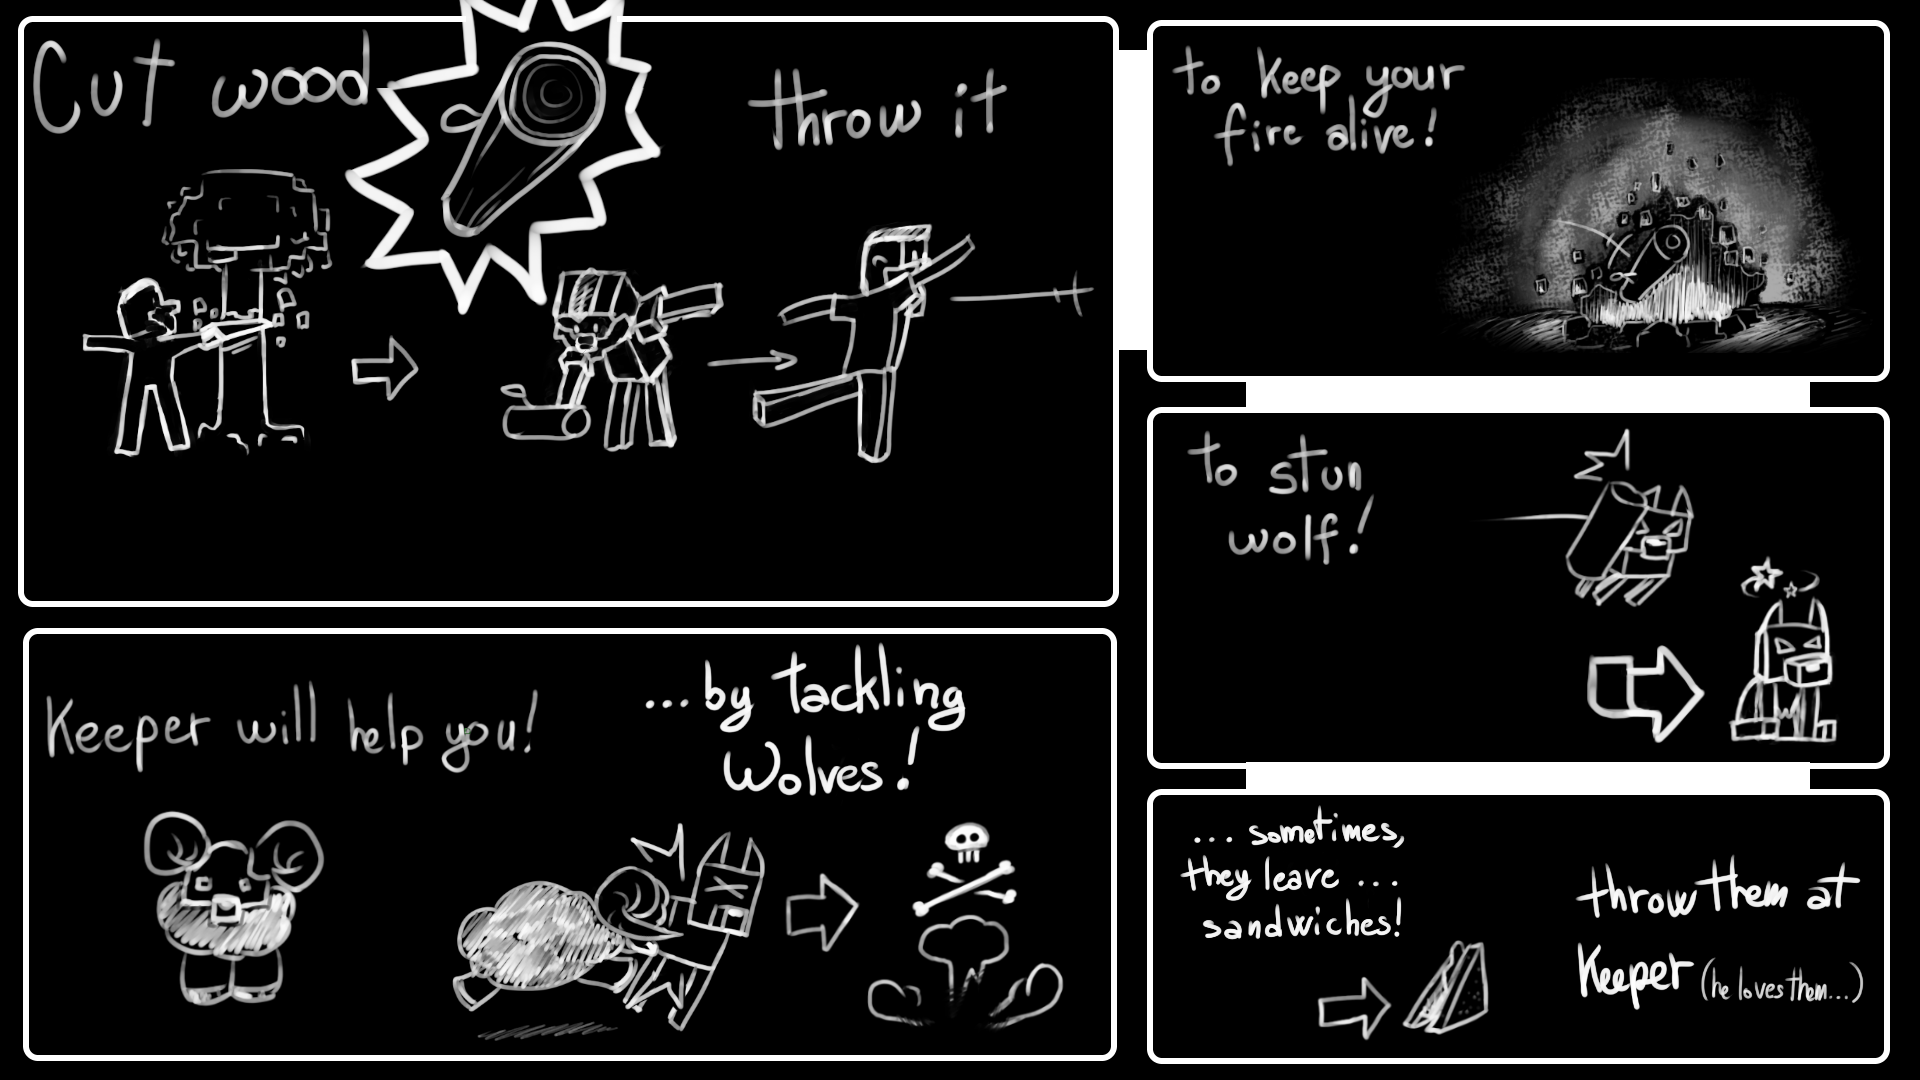 Cut wood
throw it
to keep your
fire alive!
to stun
wolf!
Keeper will help you!
... by tackling
Wolves!
... sometimes,
they leave ...
sandwiches!
throw them at
Keeper (he loves them...)